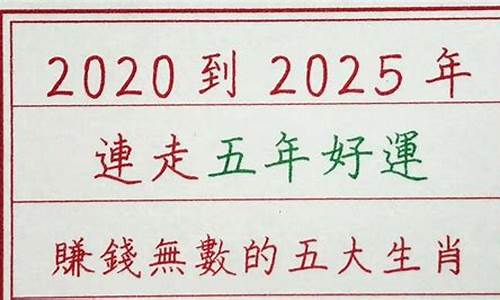 2020到2025年
連走五年好運
賺錢無數的五大生肖